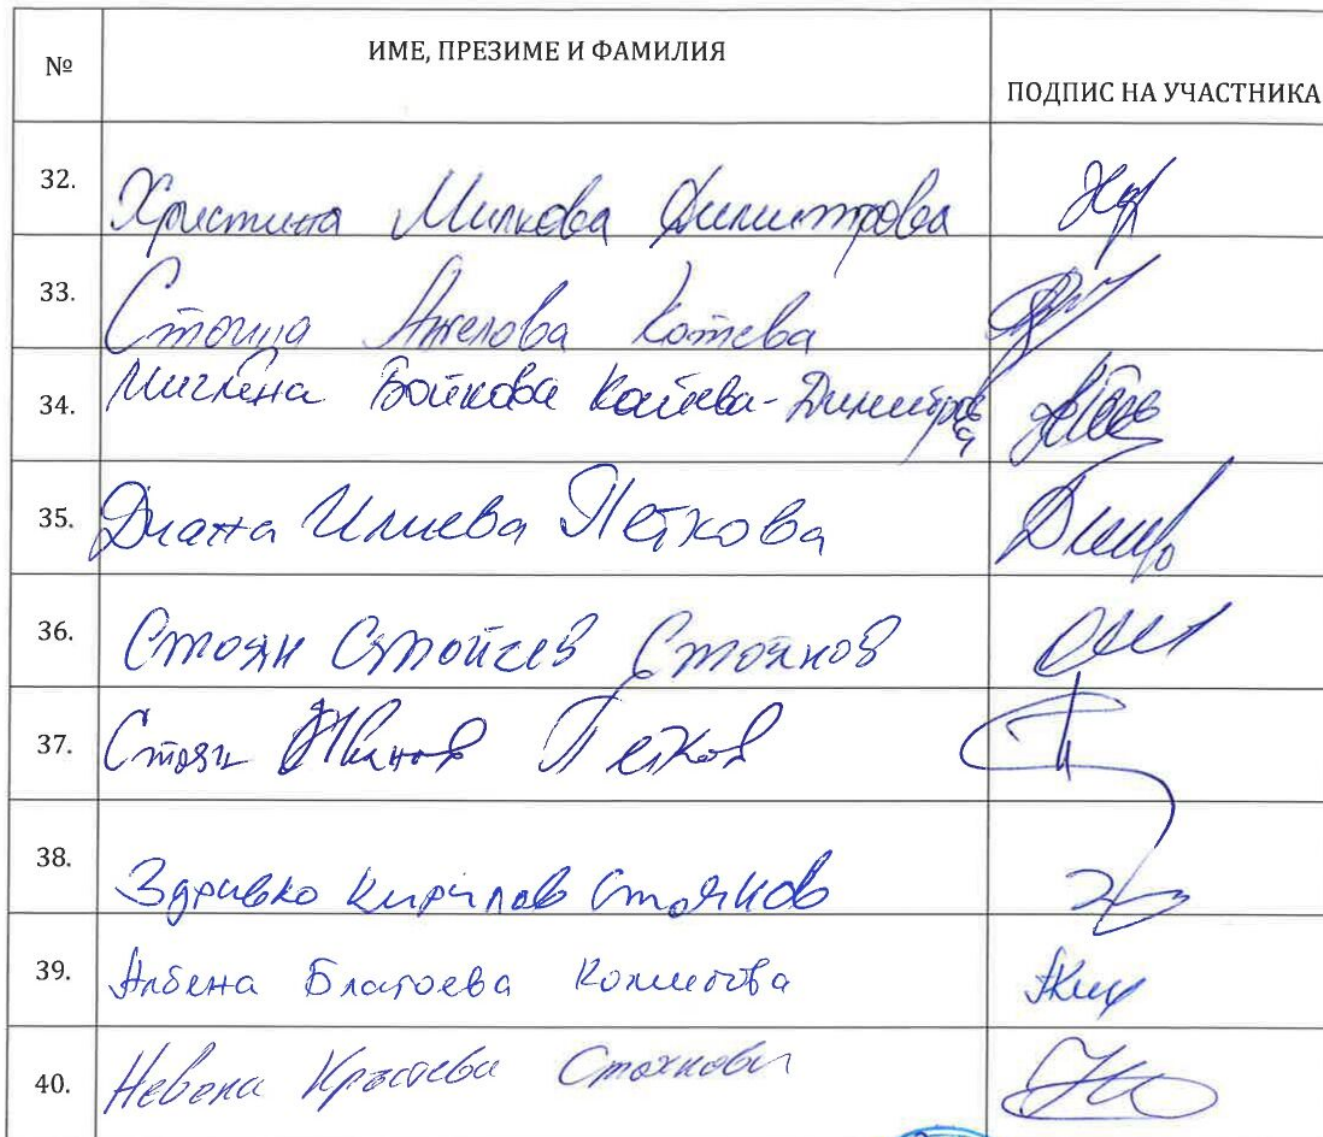 № ИМЕ, ПРЕЗИМЕ И ФАМИЛИЯ ПОДПИС НА УЧАСТНИКА
32. Христина Милкова Димитрова
33. Стоица Ангелова Котева
34. Миглена Бойкова Койчева-Димитрова
35. Диана Илиева Петкова
36. Стоян Стойчев Стоянов
37. Стоян Иванов Петков
38. Здравко Кирилов Стоянов
39. Албена Благоева
40. Невена Кръстева Стоянова